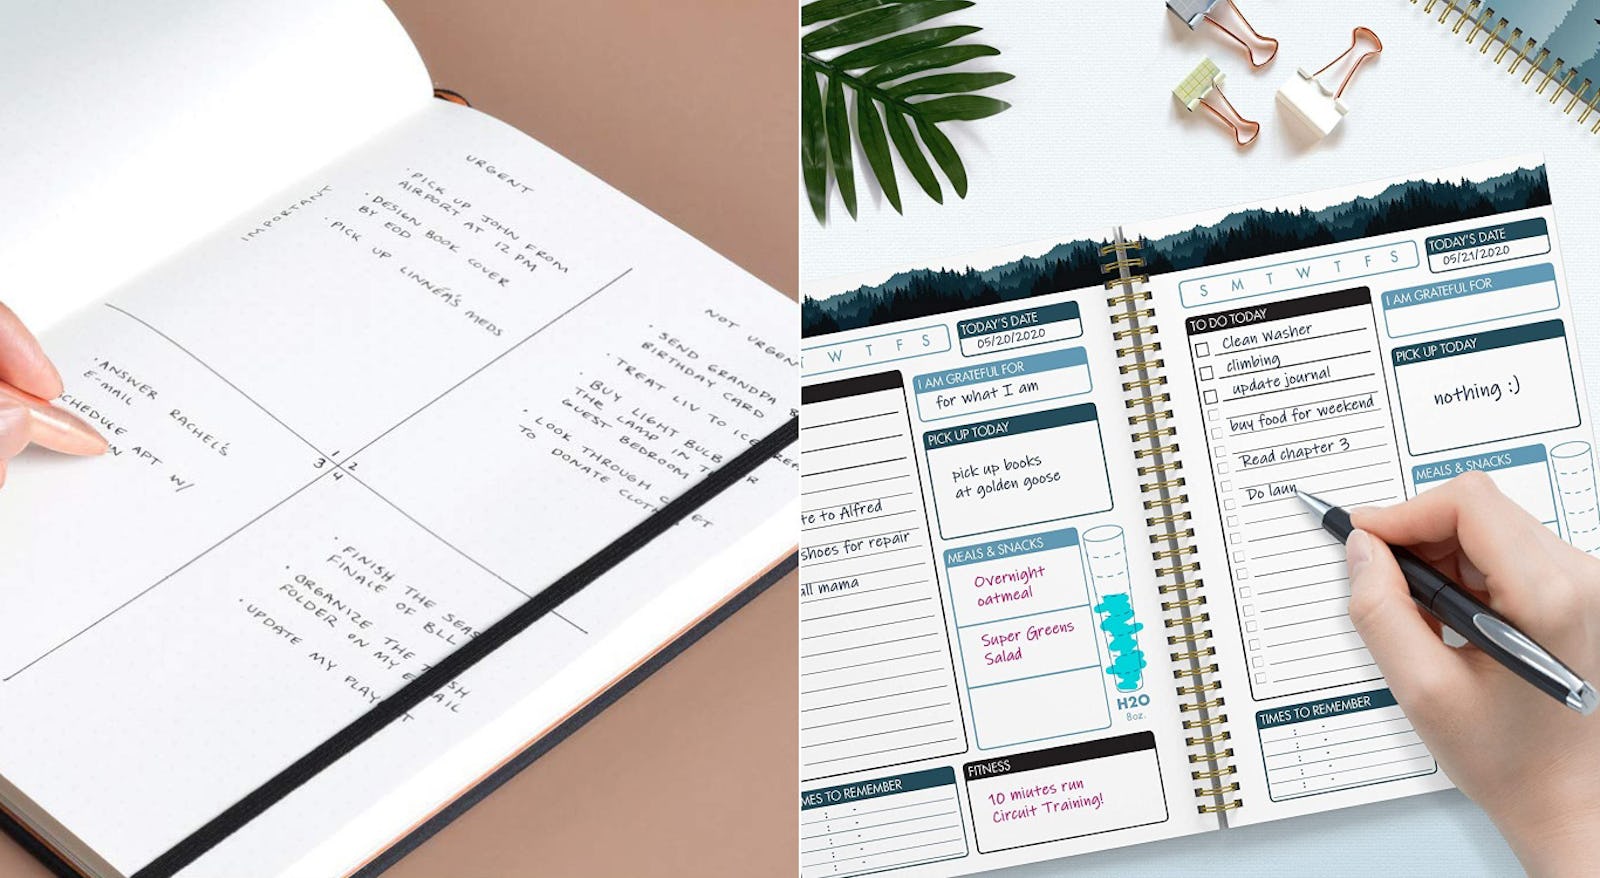 URGENT
IMPORTANT
• PICK UP JOHN FROM
AIRPORT AT 12 PM
• DESIGN BOOK COVER
BY EOD
• PICK UP LINNEA'S MEDS
NOT URGENT
• SEND GRANDPA A
BIRTHDAY CARD
• TREAT LIV TO ICE
• BUY LIGHT BULB
THE LAMP IN
GUEST BEDROOM
• LOOK THROUGH
TO DONATE
• ANSWER RACHEL'S
E-MAIL
SCHEDULE APT W/
1 2
3 4
• FINISH THE
FINALE OF BLL
• ORGANIZE THE
FOLDER ON MY EMAIL
• UPDATE MY
W T F S
TODAY'S DATE
05/20/2020
I AM GRATEFUL FOR
for what I am
PICK UP TODAY
pick up books
at golden goose
te to Alfred
shoes for repair
all mama
MEALS & SNACKS
Overnight
oatmeal
Super Greens
Salad
H2O
8oz.
MES TO REMEMBER
FITNESS
10 miutes run
Circuit Training!
S M T W T F S
TODAY'S DATE
05/21/2020
TO DO TODAY
Clean Washer
climbing
update journal
buy food for weekend
Read chapter 3
Do laun
I AM GRATEFUL FOR
PICK UP TODAY
nothing :)
MEALS & SNACKS
TIMES TO REMEMBER